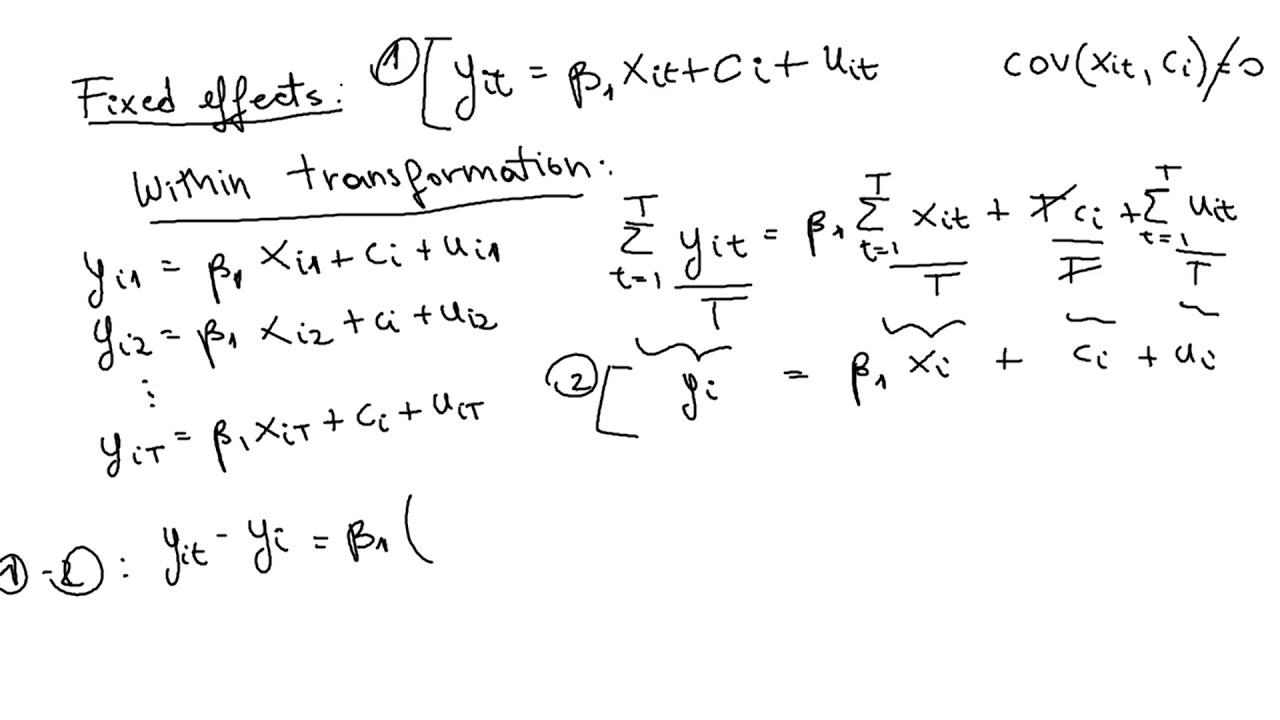 Fixed effects: ① [ yit = β1 xit + ci + uit cov(xit, ci) ≠ 0
Within transformation:
yi1 = β1 xi1 + ci + ui1
yi2 = β1 xi2 + ci + ui2
⋮
yiT = β1 xiT + ci + uiT
∑_{t=1}^{T} yit / T = β1 ∑_{t=1}^{T} xit / T + T ci / T + ∑_{t=1}^{T} uit / T
② [ yi = β1 xi + ci + ui
① - ② : yit - yi = β1 (